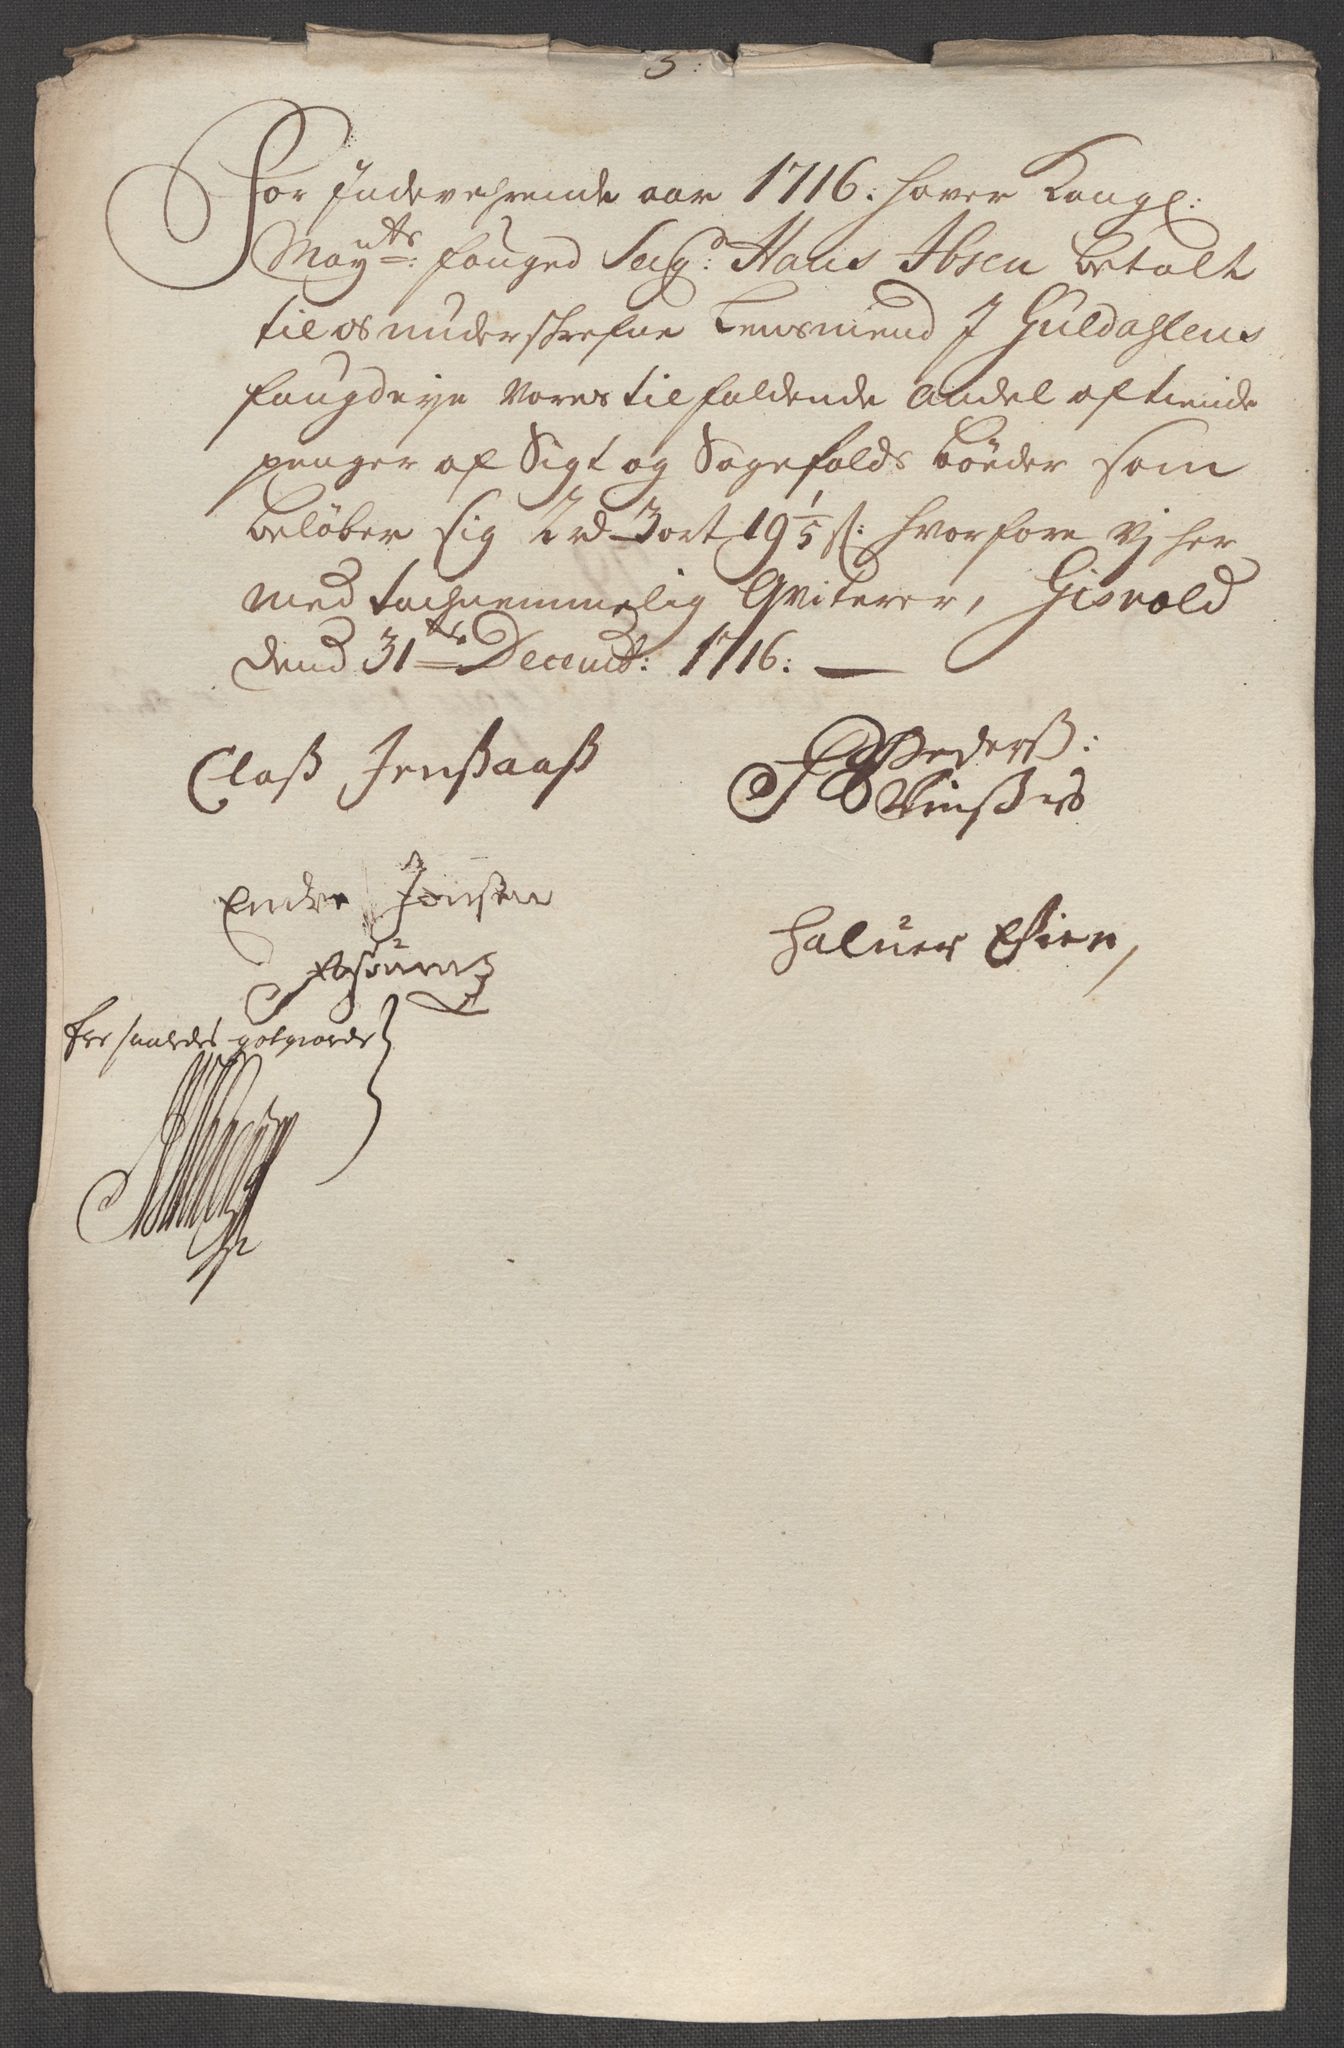 5:
For Indeverende aar 1716: haver Kongl:
Mayts: fouged Seig: Hans Ibsen betalt
til os underschrefne Lensmend J Guldahlens
fougderje vores tilfaldende Andel af tiende
penger af Sigt og Sagefalds bøeder som
beløber sig 2 rd 3 ort 19 1/5 s: hvorfore vj her
med tachnemmelig Qviterer, Gisvold
dend 31te Decemb: 1716:
Claß Jenßaaß
Pederß:
Endre Jonsen
haluer Eßien,